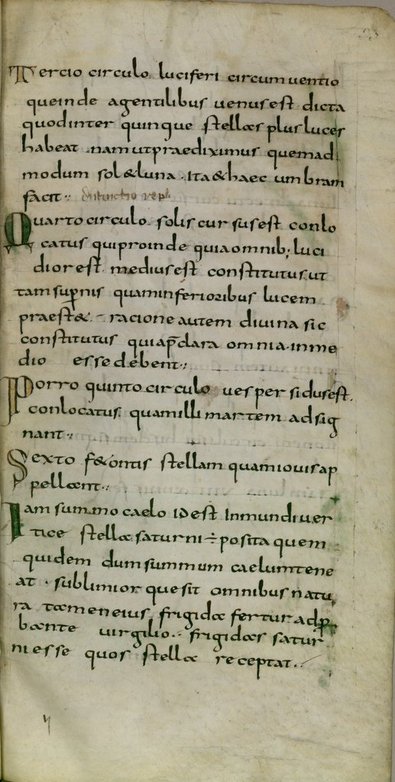 Tercio circulo luciferi circumuentio
queinde agentilibus uenus est dicta
quod inter quinque stellas plus luces
habeat nam ut praediximus quemad
modum sol & luna . Ita & haec umbram
facit ..
Quarto circulo solis cursus est conlo
catus qui proinde quia omnib; luci
dior est medius est constitutus ut
tam supnis quam inferioribus lucem
praest& racione autem diuina sic
constitutus qui apdara omnia inme
dio esse debent ..
Porro quinto circulo uesper sidus est .
conlocatus quam illi martem adsig
nant .
Sexto f&ontis stellam quam iouis ap
pellant ..
Iam summo caelo id est In mundi uer
tice stella saturni ÷ posita quem
quidem dum summum caelum tene
at . sublimior que sit omnibus natu
ra tamen eius frigida fertur adp
bante uirgilio .. frigidas satur
ni esse quos stella receptat ..